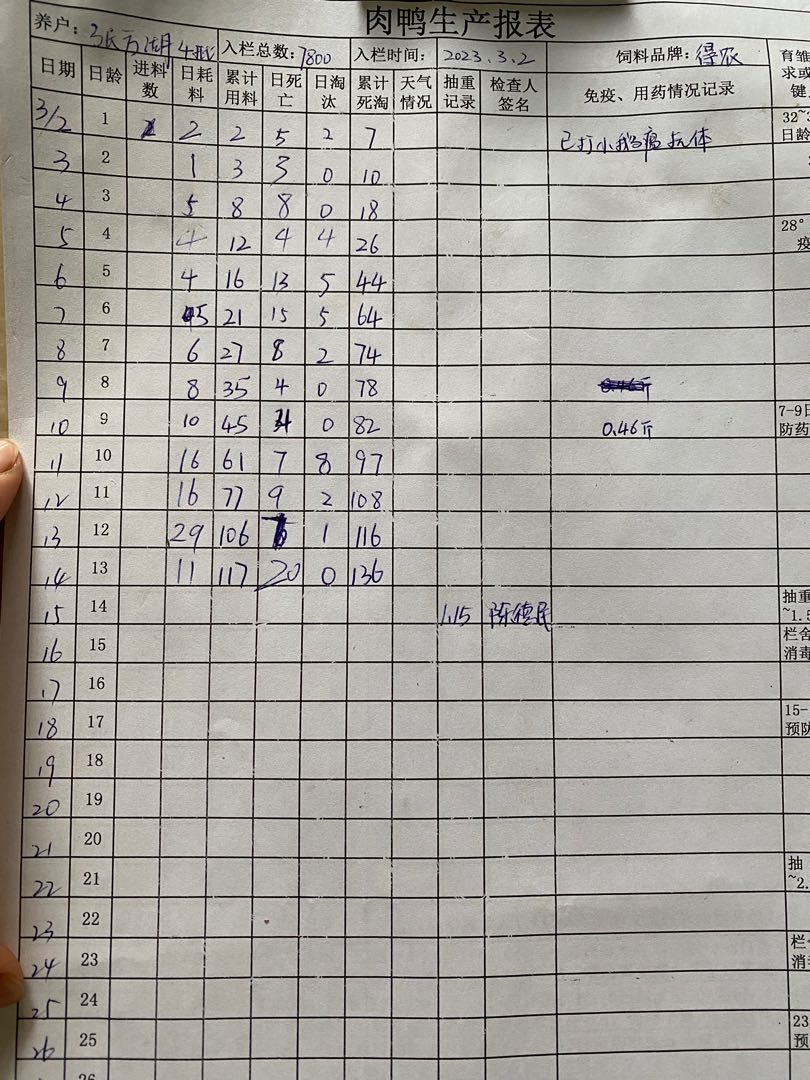 肉鸭生产报表
养户：张方湖 4批 入栏总数：7800 入栏时间：2023.3.2 饲料品牌：得农 育雏
日期 日龄 进料数 日耗料 累计用料 日死亡 日淘汰 累计死淘 天气情况 抽重记录 检查人签名 免疫、用药情况记录 求或 键
3/2 1 2 2 5 2 7 已打小鹅瘟抗体 32~ 日龄
3 2 1 3 3 0 10
4 3 5 8 8 0 18
5 4 4 12 4 4 26 28° 疫
6 5 4 16 13 5 44
7 6 5 21 15 5 64
8 7 6 27 8 2 74
9 8 8 35 4 0 78
10 9 10 45 4 0 82 0.46斤 7-9日 防药
11 10 16 61 7 8 97
12 11 16 77 9 2 108
13 12 29 106 1 116
14 13 11 117 20 0 136
15 14 1.15 陈德民 抽重 ~1.5
16 15 栏舍 消毒
17 16
18 17 15- 预防
19 18
20 19
21 20
22 21 抽 ~2.
23 22
24 23 栏 消
25 24
26 25 23 预
26